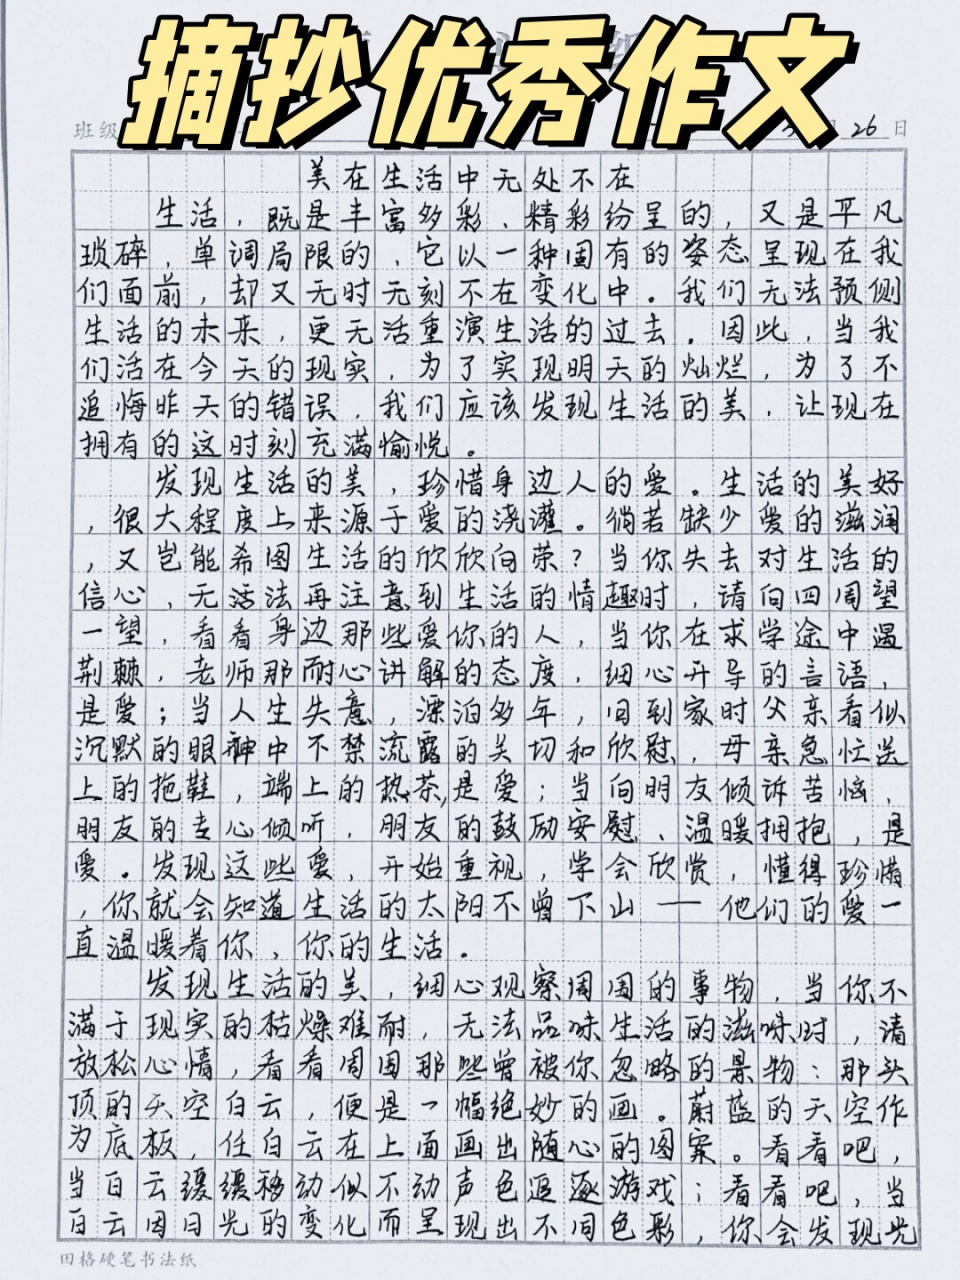 摘抄优秀作文
班级 26日
美在生活中无处不在
生活，既是丰富多彩、精彩纷呈的，又是平凡
琐碎，单调局限的，它以一种固有的姿态呈现在我
们面前，却又无时无刻不在变化中。我们无法预侧
生活的未来，更无法重演生活的过去。因此，当我
们活在今天的现实，为了实现明天的灿烂，为了不
追悔昨天的错误，我们应该发现生活的美，让现在
拥有的这时刻充满愉悦。
发现生活的美，珍惜身边人的爱。生活的美好
，很大程度上来源于爱的浇灌。倘若缺少爱的滋润
，又岂能希图生活的欣欣向荣？当你失去对生活的
信心，无法再注意到生活的情趣时，请向四周望
一望，看看身边那些爱你的人，当你在求学途中遇
荆棘，老师那耐心讲解的态度，细心开导的言语，
是爱；当人生失意，漂泊多年，回到家时父亲看似
沉默的眼神中不禁流露的关切和欣慰，母亲急忙送
上的拖鞋，端上的热茶，是爱；当向朋友倾诉苦恼，
朋友的专心倾听，朋友的鼓励安慰、温暖拥抱，是
爱。发现这些爱，开始重视，学会欣赏，懂得珍惜
，你就会知道生活的太阳不曾下山——他们的爱一
直温暖着你，你的生活。
发现生活的美，细心观察周围的事物，当你不
满于现实的枯燥难耐，无法品味生活的滋味时，请
放松心情，看看周围那些曾被你忽略的景物：那头
顶的天空白云，便是一幅绝妙的画。蔚蓝的天空作
为底板，任白云在上面画出随心的图案。看看吧，
当白云缓缓移动似不动声色追逐游戏；看看吧，当
白云因日光的变化而呈现出不同色彩，你会发现光
田格硬笔书法纸